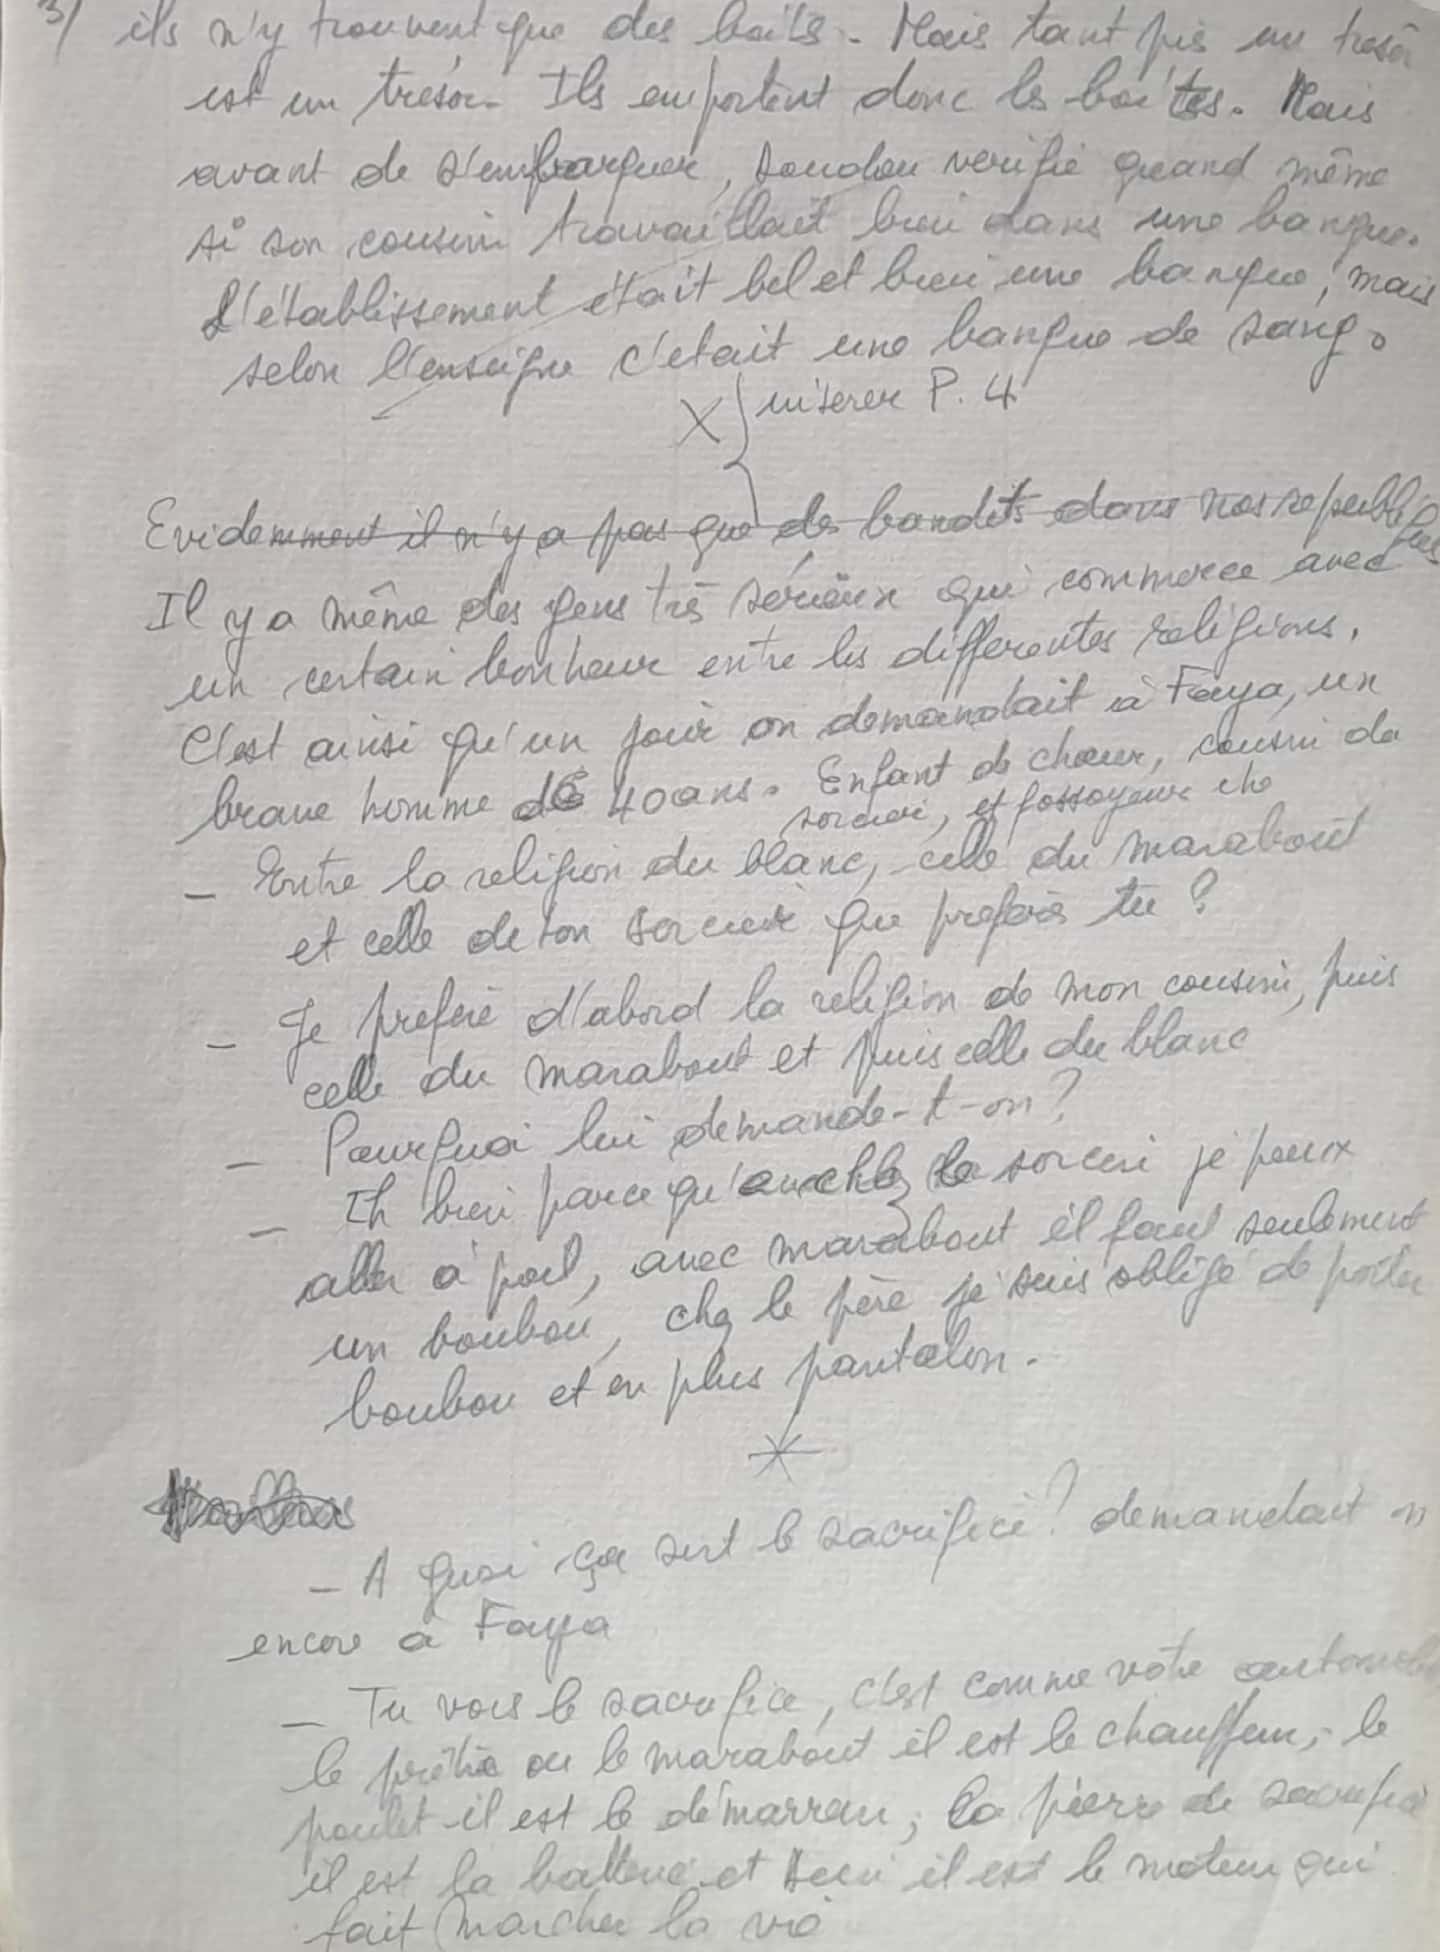 3/ ils n'y trouvent que des boîtes. Mais tant pis un trésor
est un trésor. Ils emportent donc les boîtes. Mais
avant de s'embarquer, Soudou verifie quand même
si son cousin travaillait bien dans une banque.
L'établissement était bel et bien une banque, mais
selon l'enseigne c'etait une banque de sang.
X inserer P. 4
Evidemment il n'y a pas que des bandits dans nos republiques
Il y a même des gens très sérieux qui commerce avec
un certain bonheur entre les differentes religions.
C'est ainsi qu'un jour on demandait à Faya, un
brave homme de 40 ans. Enfant de chœur, cousin de
sorcier, et fossoyeur che
- Entre la religion du blanc, celle du marabout
et celle de ton sorcier que preferes tu ?
- Je prefere d'abord la religion de mon cousin, puis
celle du marabout et puis celle du blanc
- Pourquoi lui demande-t-on ?
- Eh bien parce qu' chez le sorcier je peux
aller à poil, avec marabout il faut seulement
un boubou, chez le père je suis obligé de porter
boubou et en plus pantalon.
- A quoi ça sert le sacrifice ? demandait on
encore à Faya
- Tu vois le sacrifice, c'est comme votre automobile
le prêtre ou le marabout il est le chauffeur, le
poulet il est le démarreur, la pierre de sacrifice
il est la batterie et il est le moteur qui
fait marcher la vie